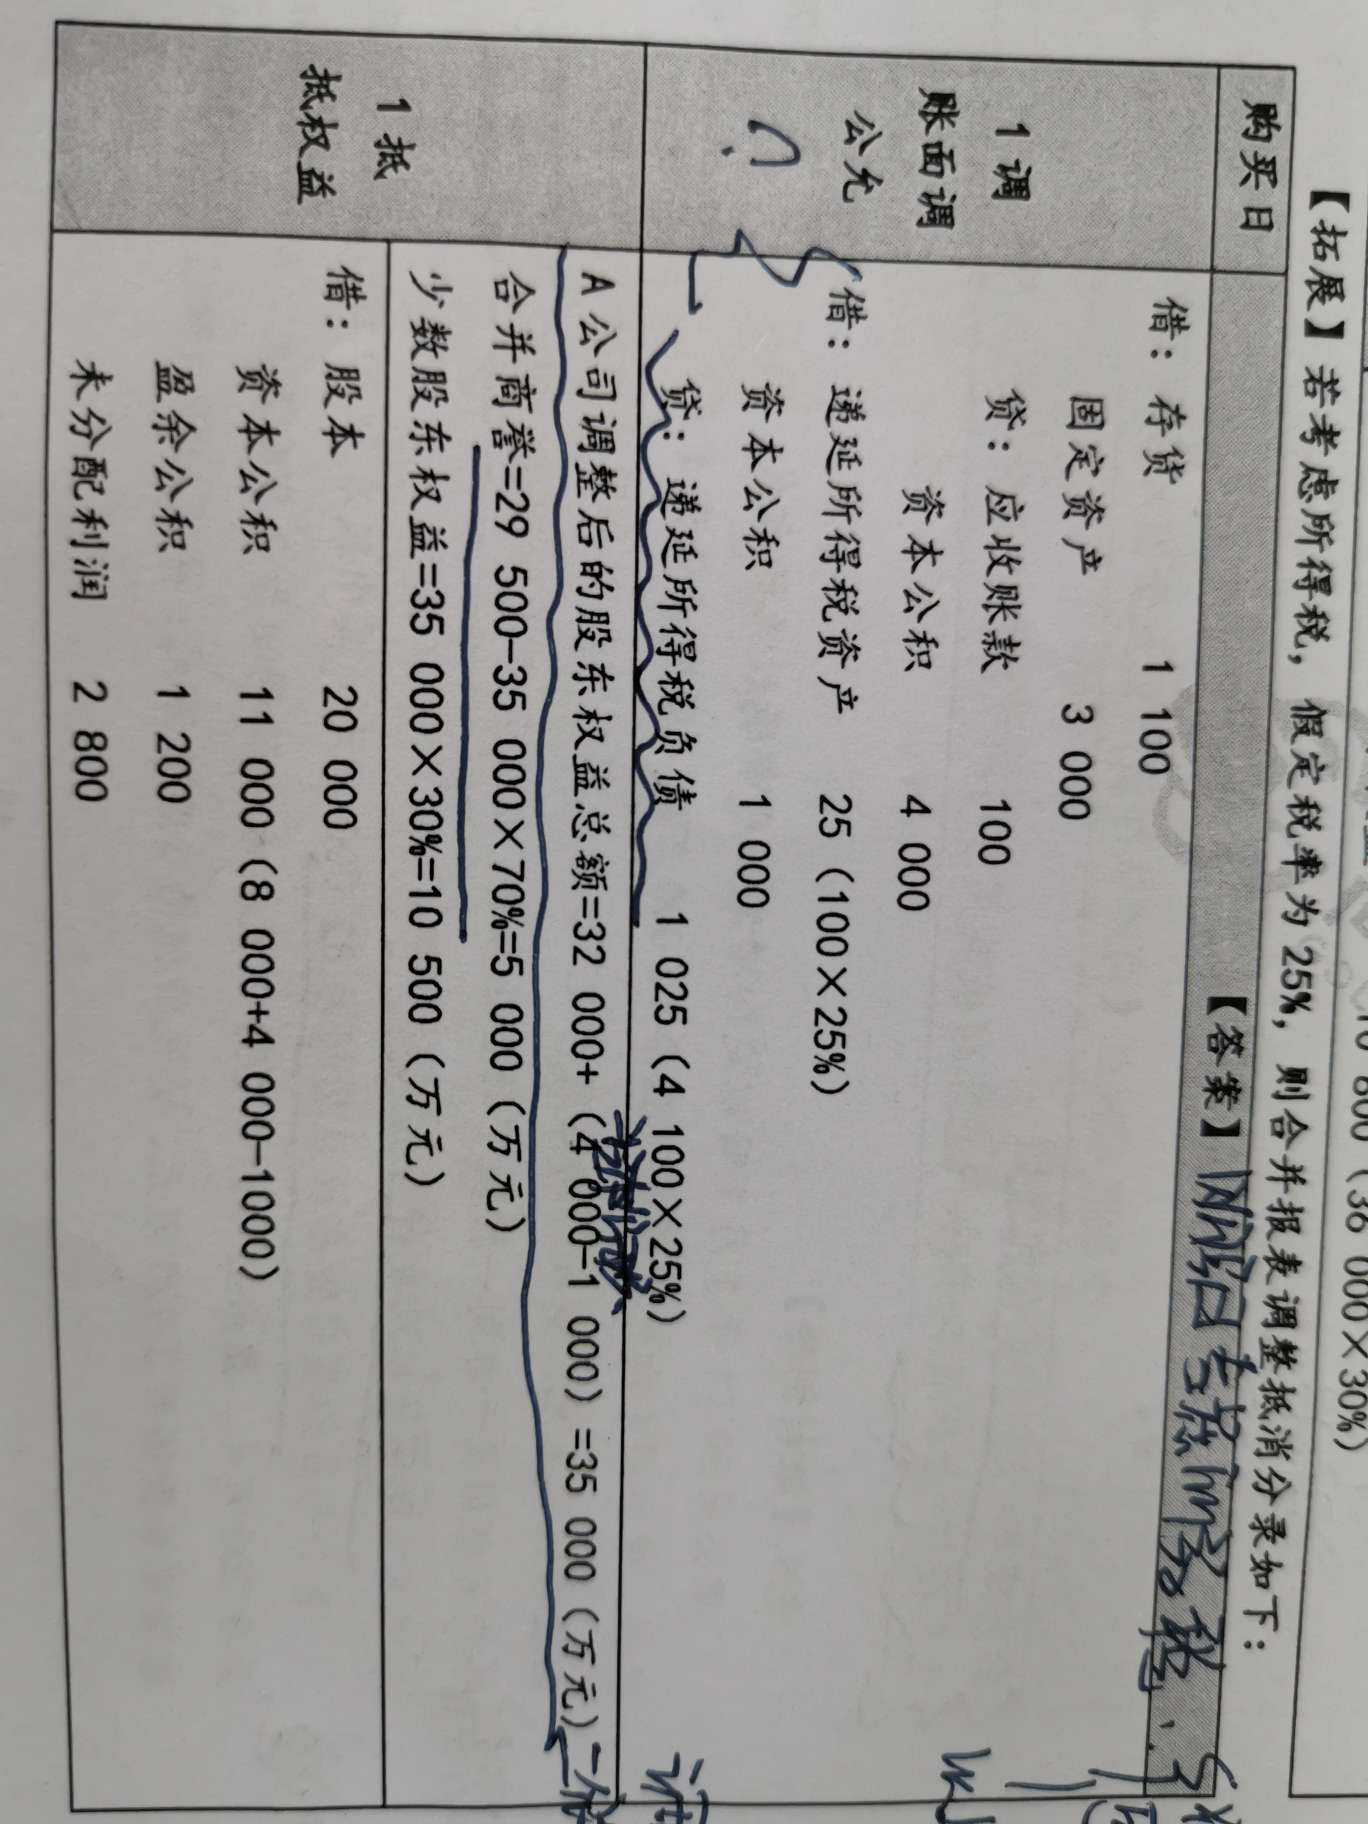 10 800（36 000×30%）
【拓展】若考虑所得税，假定税率为25%，则合并报表调整抵消分录如下：
购买日
【答案】
1调
账面调
公允
借：存货 1 100
固定资产 3 000
贷：应收账款 100
资本公积 4 000
借：递延所得税资产 25（100×25%）
资本公积 1 000
贷：递延所得税负债 1 025（4 100×25%）
A公司调整后的股东权益总额=32 000+（4 000-1 000）=35 000（万元）
合并商誉=29 500-35 000×70%=5 000（万元）
少数股东权益=35 000×30%=10 500（万元）
1抵
抵权益
借：股本 20 000
资本公积 11 000（8 000+4 000-1000）
盈余公积 1 200
未分配利润 2 800